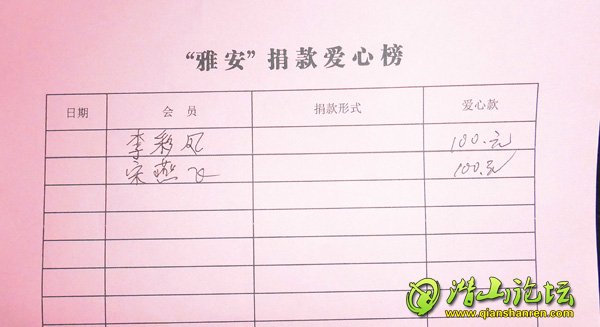 “雅安”捐款爱心榜
日期 会员 捐款形式 爱心款
李彩凤 100.元
宋燕飞 100.元
潜山论坛
www.qianshanren.com